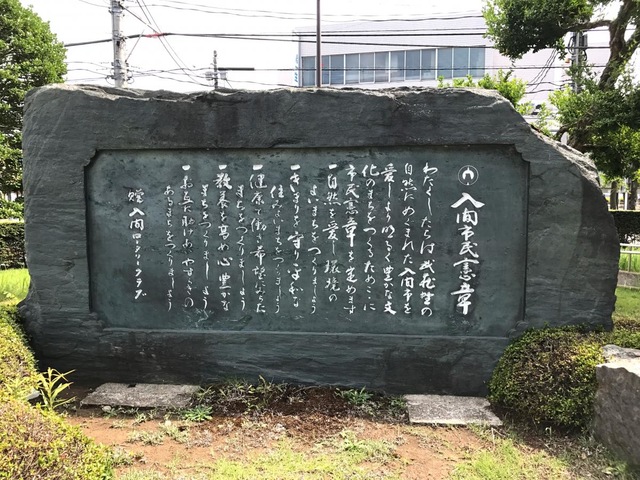 入間市民憲章
わたくしたちは武蔵野の
自然にめぐまれた入間市を
愛しより明るく豊かな文
化のまちをつくるためここに
市民憲章を定めます
一自然を愛し環境の
よいまちをつくりましょう
一きまりを守り平和な
住みよいまちをつくりましょう
一健康で働き希望にみちた
まちをつくりましょう
一教養を高め心豊かな
まちをつくりましょう
一お互に助けあいやすらぎの
あるまちをつくりましょう
贈 入間ロータリークラブ